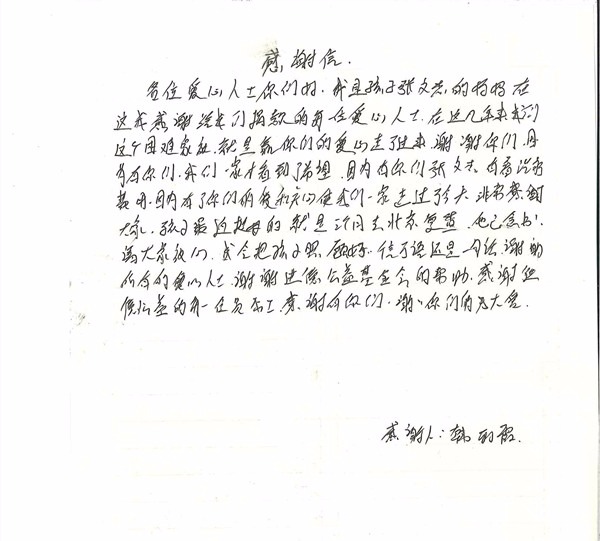 感谢信.
各位爱心人士你们好.我是孩子张文杰的妈妈在
这我感谢给我们捐款的每一位爱心人士.在这几年来我们
这个困难家庭.就是靠你们的爱心走了过来.谢谢你们.因
为有你们.我们一家才看到了希望.因为有你们张文杰有着治疗
费用.因为有了你们的爱和关心使我们一家走过了今天非常感谢
大家.孩子最近
的就是三个月去北京复查.也已
请大家放心.我会把孩子照顾好.
还是一句话.谢谢
所有的爱心人士.谢谢
公益基金会的帮助.感谢
公益的每一位员工.感谢有你们.谢谢你们的
大爱.
感谢人:韩